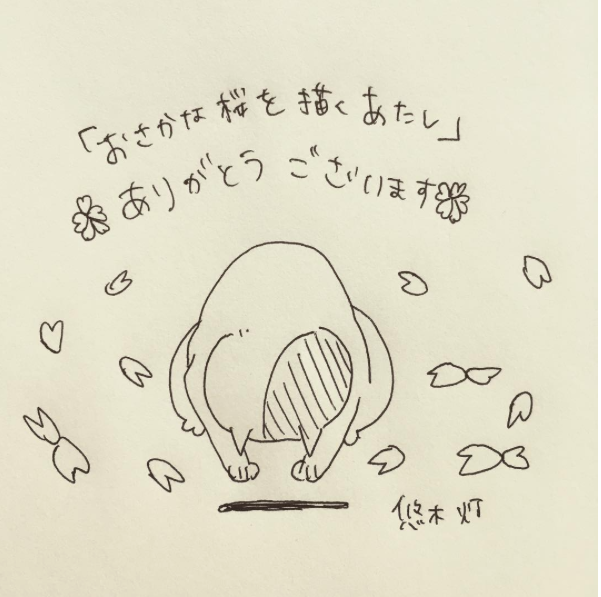 「おさかな桜を描くあたし」
ありがとうございます
悠木 灯